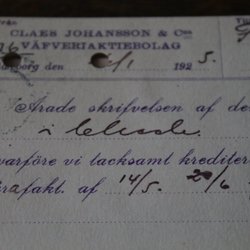 från
CLAES JOHANSSON & C:os
VÄFVERIAKTIEBOLAG
den 2/1 1925.
Ärade skrifvelsen af de
i
varföre vi tacksamt krediter
rafakt. af 14/5. 20/6